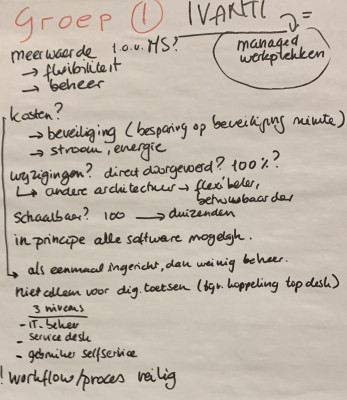 Groep 1 IVANTI =
meerwaarde t.o.v. MS?
managed werkplekken
→ flexibiliteit
→ beheer
kosten?
→ beveiliging (besparing op beveiliging ruimte)
→ stroom, energie
wijzigingen? direct doorgevoerd? 100%?
↳ andere architectuur → flexibeler, betrouwbaarder
schaalbaar? 100 → duizenden
in principe alle software mogelijk.
→ als eenmaal ingericht, dan weinig beheer.
niet alleen voor dig. toetsen (bgv. koppeling top desk)
3 niveaus
- IT-beheer
- service desk
- gebruiker selfservice
! workflow/proces veilig